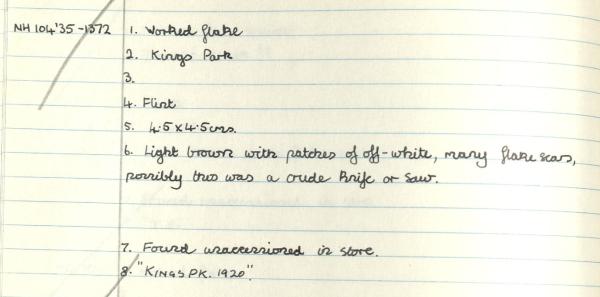 NH 104'35-1372 1. Worked flake
2. Kings Park
3.
4. Flint
5. 4.5 x 4.5cms.
6. Light brown with patches of off-white, many flake scars,
possibly this was a crude knife or saw.
7. Found unaccessioned in store.
8. "KINGS PK. 1920".